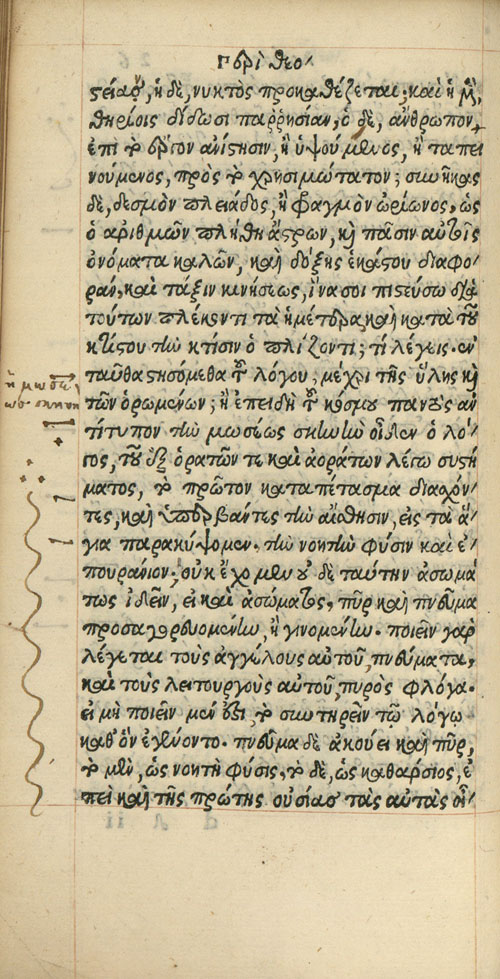 περὶ θεο/
στείας, ἡ δὲ, νυκτὸς προκαθέζεται; καὶ ἡ μὲν,
θηρίοις δίδωσι παῤῥησίαν, ὁ δὲ, ἄνθρωπον,
ἐπὶ τὸ ἔργον ἀνίστησιν, ἢ ὑψούμενος, ἢ ταπει
νούμενος, πρὸς τὸ χρησιμώτατον; συνῆκας
δὲ, δεσμὸν πλειάδος, ἢ φραγμὸν ὠρίωνος, ὡς
ὁ ἀριθμῶν πλήθη ἄστρων, καὶ πᾶσιν αὐτοῖς
ὀνόματα καλῶν, καὶ δόξης ἑκάστου διαφο/
ράν, καὶ τάξιν κινήσεως, ἵνα σοι πιστεύσω διὰ
τούτων πλέκοντι τὰ ἡμέτερα, καὶ κατὰ τοῦ
κτίστου τὴν κτίσιν ὁπλίζοντι; τί λέγεις. ἐν
ταῦθα στησόμεθα τοῦ λόγου, μέχρι τῆς ὕλης καὶ
τῶν ὁρωμένων; ἢ ἐπειδὴ τοῦ κόσμου παντὸς ἀν
τίτυπον τὴν μωσέως σκηνὴν οἶδεν ὁ λό/
γος, τοῦ ἐξ ὁρατῶν τε καὶ ἀοράτων λέγω συστή
ματος, τὸ πρῶτον καταπέτασμα διασχόν/
τες, καὶ ὑπερβάντες τὴν αἴσθησιν, εἰς τὰ ἅ/
για παρακύψομεν. τὴν νοητὴν φύσιν καὶ ἐ/
πουράνιον; οὐκ ἔχομεν οὐδὲ ταύτην ἀσωμά
τως ἰδεῖν, εἰ καὶ ἀσώματος, πῦρ καὶ πνεῦμα
προσαγορευομένην, ἢ γινομένην. ποιεῖν γὰρ
λέγεται τοὺς ἀγγέλους αὐτοῦ, πνεύματα,
καὶ τοὺς λειτουργοὺς αὐτοῦ, πυρὸς φλόγα.
εἰ μὴ ποιεῖν μέν ἐστι, τὸ συντηρεῖν τῷ λόγῳ
καθ' ὃν ἐγένοντο. πνεῦμα δὲ ἀκούει καὶ πῦρ,
τὸ μὲν, ὡς νοητὴ φύσις, τὸ δὲ, ὡς καθάρσιος, ἐ
πεὶ καὶ τῆς πρώτης οὐσίας τὰς αὐτὰς οἶ/